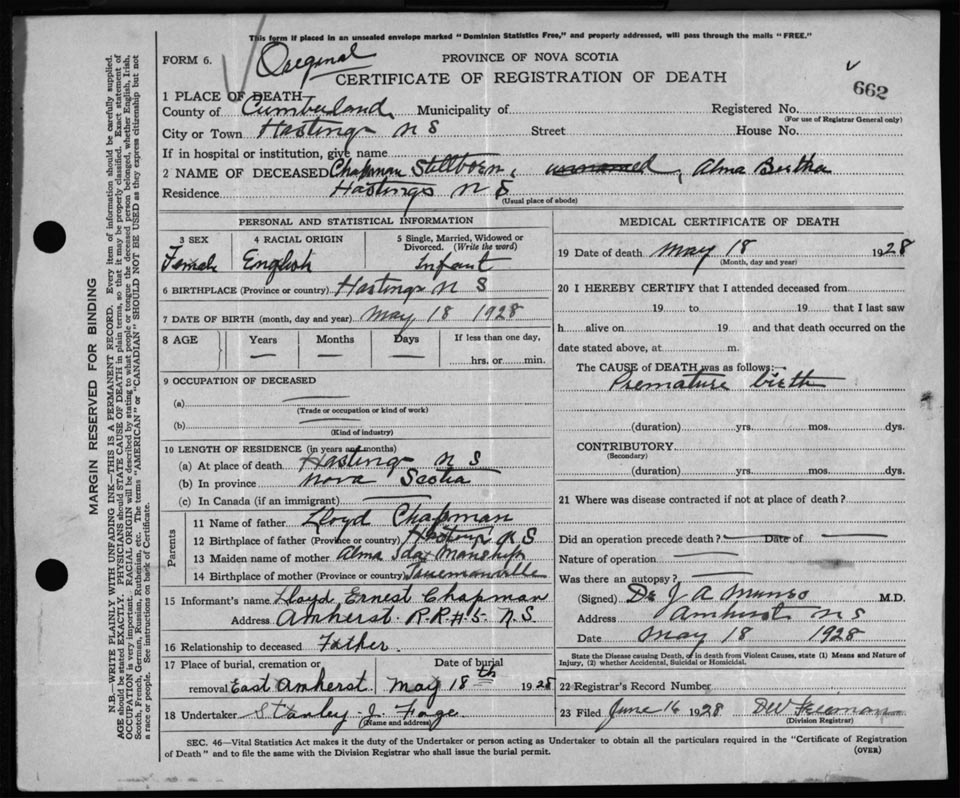 This form if placed in an unsealed envelope marked "Dominion Statistics Free," and properly addressed, will pass through the mails "FREE."
FORM 6. Original PROVINCE OF NOVA SCOTIA
CERTIFICATE OF REGISTRATION OF DEATH
662
1 PLACE OF DEATH
County of Cumberland, Municipality of Registered No.
(For use of Registrar General only)
City or Town Hastings N S Street House No.
If in hospital or institution, give name
2 NAME OF DECEASED Chapman Stillborn, unnamed, Alma Bertha
Residence Hastings N S
(Usual place of abode)
PERSONAL AND STATISTICAL INFORMATION
3 SEX 4 RACIAL ORIGIN 5 Single, Married, Widowed or Divorced. (Write the word)
Female English Infant
6 BIRTHPLACE (Province or country) Hastings N S
7 DATE OF BIRTH (month, day and year) May 18 1928
8 AGE Years Months Days If less than one day,
— — — hrs. or min.
9 OCCUPATION OF DECEASED
(a)
(Trade or occupation or kind of work)
(b)
(Kind of industry)
10 LENGTH OF RESIDENCE (in years and months)
(a) At place of death Hastings N S
(b) In province Nova Scotia
(c) In Canada (if an immigrant)
Parents
11 Name of father Lloyd Chapman
12 Birthplace of father (Province or country) Hastings N S
13 Maiden name of mother Alma Ida
14 Birthplace of mother (Province or country)
15 Informant's name Lloyd Ernest Chapman
Address Amherst. R.R.#5. N.S.
16 Relationship to deceased Father.
17 Place of burial, cremation or Date of burial
removal East Amherst May 18th 1928
18 Undertaker Stanley J. Fage
(Name and address)
MEDICAL CERTIFICATE OF DEATH
19 Date of death May 18 1928
(Month, day and year)
20 I HEREBY CERTIFY that I attended deceased from
19 to 19 that I last saw
h alive on 19 and that death occurred on the
date stated above, at m.
The CAUSE of DEATH was as follows:—
Premature birth
(duration) yrs. mos. dys.
CONTRIBUTORY
(Secondary)
(duration) yrs. mos. dys.
21 Where was disease contracted if not at place of death?
Did an operation precede death? Date of
Nature of operation
Was there an autopsy?
(Signed) Dr J A Munro M.D.
Address Amherst N S
Date May 18 1928
State the Disease causing Death, or in death from Violent Causes, state (1) Means and Nature of
Injury, (2) whether Accidental, Suicidal or Homicidal.
22 Registrar's Record Number
23 Filed June 16 1928 DW Freeman
(Division Registrar)
SEC. 46—Vital Statistics Act makes it the duty of the Undertaker or persons acting as Undertaker to obtain all the particulars required in the "Certificate of Registration
of Death" and to file the same with the Division Registrar who shall issue the burial permit. (OVER)
MARGIN RESERVED FOR BINDING
N.B.—WRITE PLAINLY WITH UNFADING INK—THIS IS A PERMANENT RECORD. Every item of information should be carefully supplied.
AGE should be stated EXACTLY. PHYSICIANS should STATE CAUSE OF DEATH in plain terms, so that it may be properly classified. Exact statement of
OCCUPATION is very important. RACIAL ORIGIN will be described by stating to what people or tongue the deceased person belonged, whether English, Irish,
Scotch, French, German, Russian, Ruthenian, etc. The terms "AMERICAN" or "CANADIAN" SHOULD NOT BE USED as they express citizenship but not
a race or people. See instructions on back of Certificate.